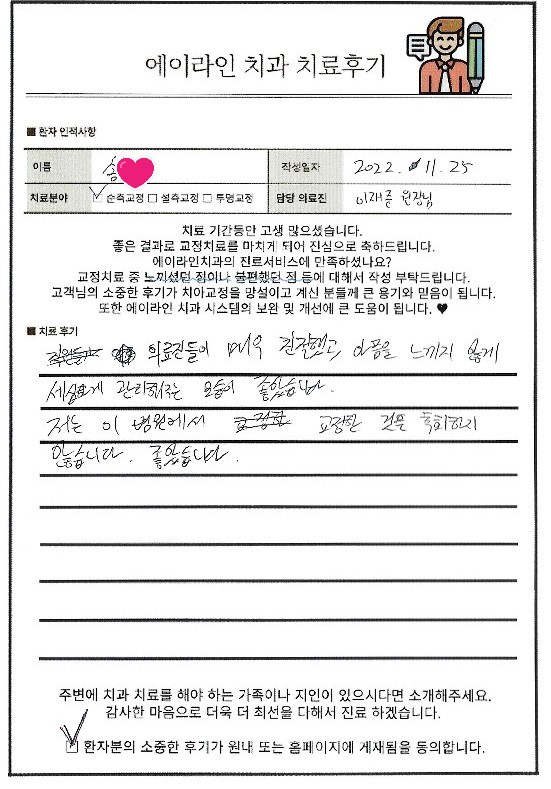 에이라인 치과 치료후기
■ 환자 인적사항
이름 송 작성일자 2022. 11. 25
치료분야 ☑ 순측교정 □ 설측교정 □ 투명교정 담당 의료진 이재준 원장님
치료 기간동안 고생 많으셨습니다.
좋은 결과로 교정치료를 마치게 되어 진심으로 축하드립니다.
에이라인치과의 진료서비스에 만족하셨나요?
교정치료 중 느끼셨던 점이나 불편했던 점 등에 대해서 작성 부탁드립니다.
고객님의 소중한 후기가 치아교정을 망설이고 계신 분들께 큰 용기와 믿음이 됩니다.
또한 에이라인 치과 시스템의 보완 및 개선에 큰 도움이 됩니다. ♥
■ 치료 후기
의료진들이 매우 친절했고, 아픔을 느끼지 않게
세심하게 관리해주는 모습이 좋았습니다.
저는 이 병원에서 교정한 것은 후회하지
않습니다. 좋았습니다.
주변에 치과 치료를 해야 하는 가족이나 지인이 있으시다면 소개해주세요.
감사한 마음으로 더욱 더 최선을 다해서 진료 하겠습니다.
☑ 환자분의 소중한 후기가 원내 또는 홈페이지에 게재됨을 동의합니다.